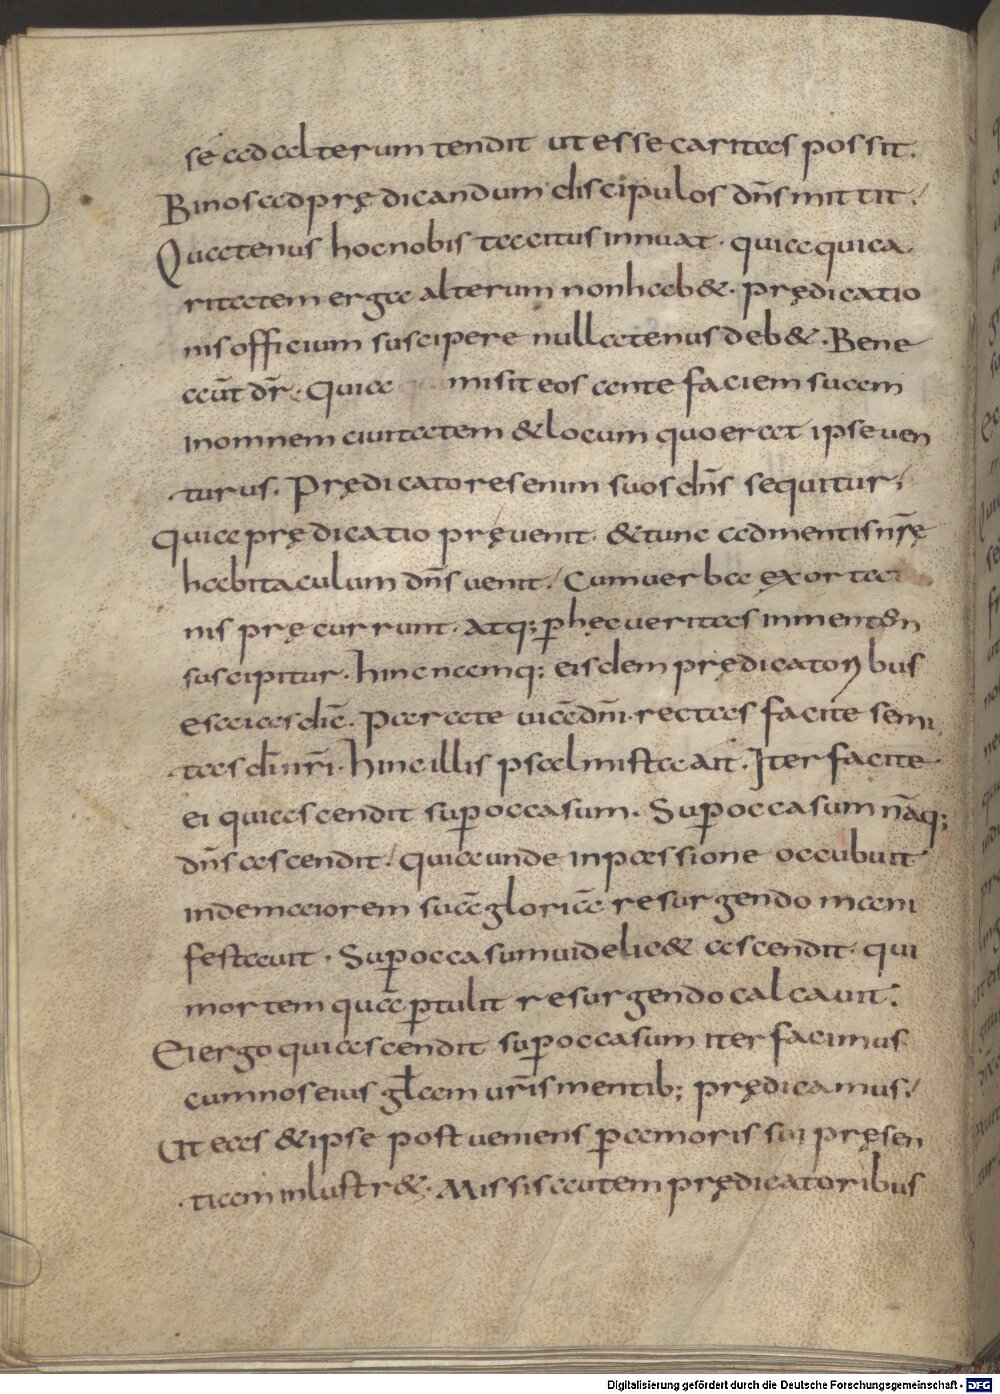 se ad alterum tendit ut esse caritas possit.
Binos ad prędicandum discipulos dn̄s mittit.
Quatenus hoc nobis tacitus innuat. quia qui ca
ritatem erga alterum non hab&. prędicatio
nis officium suscipere nullatenus deb&. Bene
aūt dr̄. Quia misit eos ante faciem suam
in omnem ciuitatem & locum quo erat ipse uen
turus. Prędicatores enim suos dn̄s sequitur;
quia prędicatio pręuenit. & tunc ad mentis nr̄ę
habitaculum dn̄s uenit. Cum uerba exortati
nis pręcurrunt. atq; p̄ hęc ueritas in mentem
suscipitur. Hinc namq; eisdem prędicatoribus
esaias dic̄. Parate uiā dn̄i. rectas facite semi
tas di nr̄i. Hinc illis psalmista ait. Iter facite
ei qui ascendit sup̄ occasum. Sup̄ occasum nāq;
dn̄s ascendit. quia unde in passione occubuit
inde maiorem suā gloriā resurgendo mani
festauit. Sup̄ occasum uidelic& ascendit. qui
mortem quā p̄tulit resurgendo calcauit.
Ei ergo qui ascendit sup̄ occasum iter facimus
cum nos eius gl̄am ur̄is mentib; prędicamus.
Ut eas & ipse post ueniens p̄ amoris sui pręsen
tiam inlustr&. Missis autem prędicatoribus
Digitalisierung gefördert durch die Deutsche Forschungsgemeinschaft - DFG